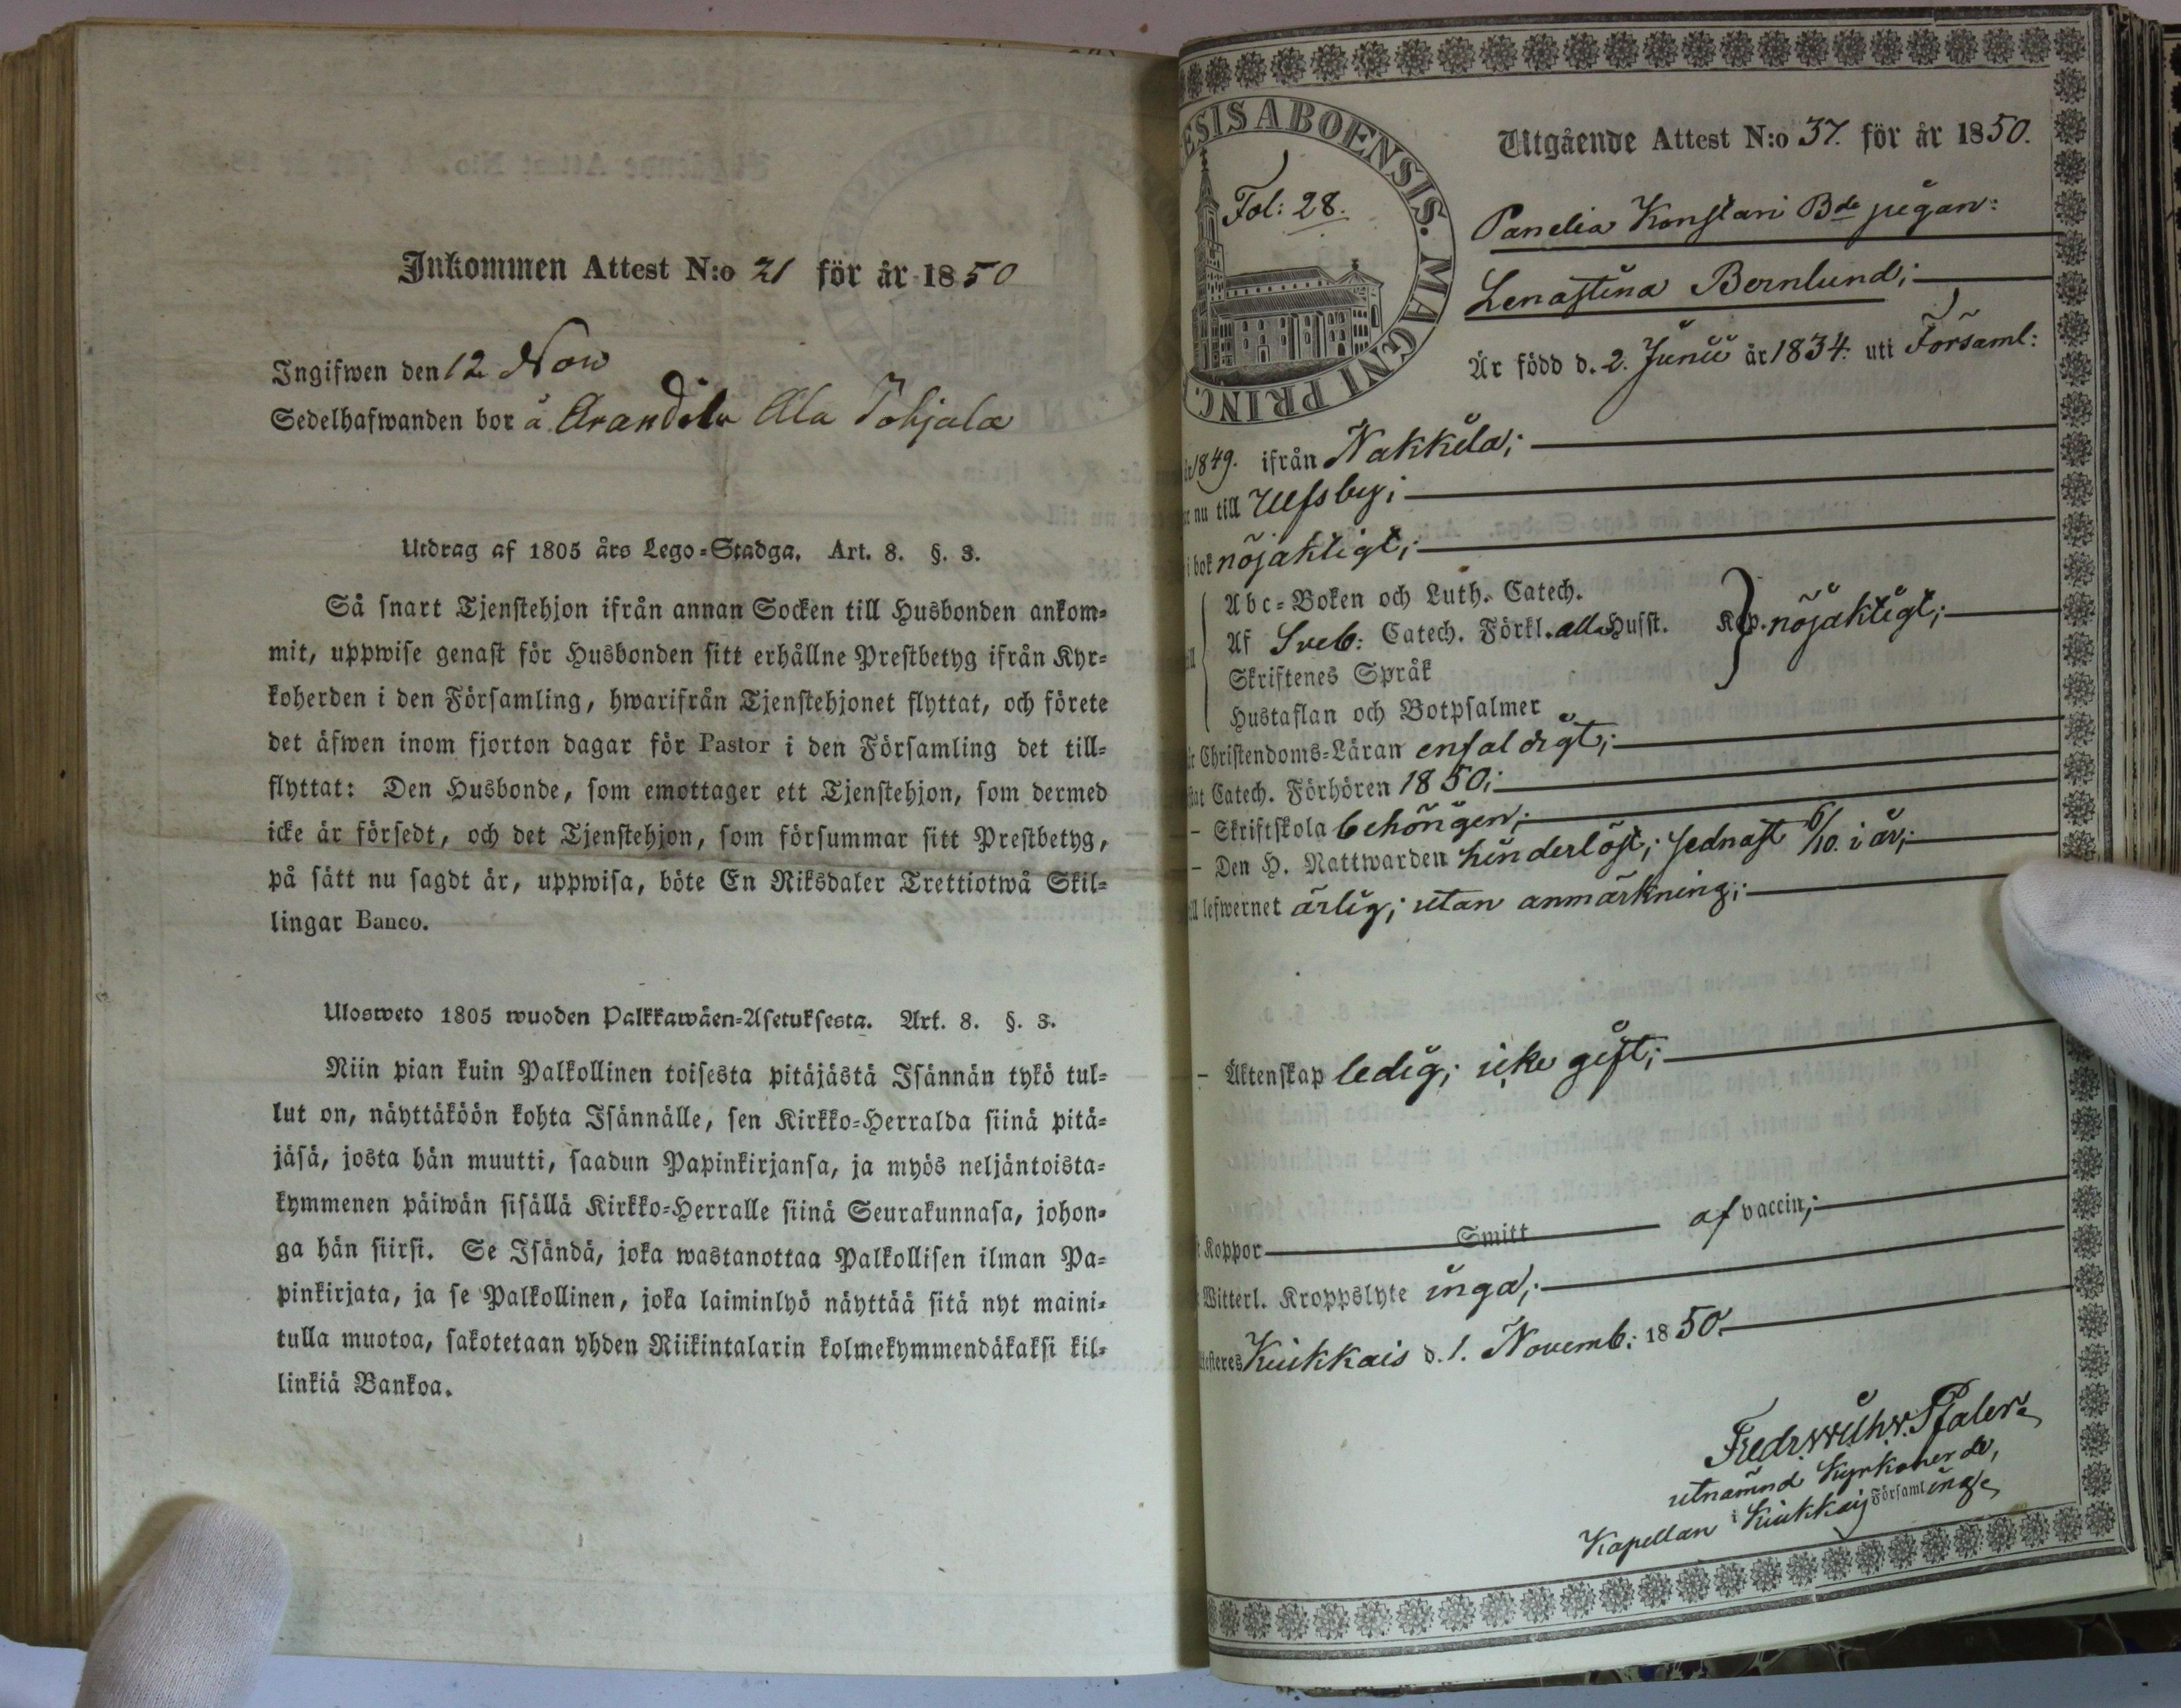 Inkommen Attest N:o 21 för år 1850
Ingifwen den 12 Nov
Sedelhafwanden bor å Arandila Ala Pohjala
Utdrag af 1805 års Lego-Stadga. Art. 8. §. 3.
Så snart Tjenstehjon ifrån annan Socken till Husbonden ankom-
mit, uppwise genast för Husbonden sitt erhållne Prestbetyg ifrån Kyr-
koherden i den Församling, hwarifrån Tjenstehjonet flyttat, och förete
det äfwen inom fjorton dagar för Pastor i den Församling det till-
flyttat: Den Husbonde, som emottager ett Tjenstehjon, som dermed
icke är försedt, och det Tjenstehjon, som försummar sitt Prestbetyg,
på sätt nu sagdt är, uppwisa, böte En Riksdaler Trettiotwå Skil-
lingar Banco.
Ulosweto 1805 wuoden Palkkawäen-Asetuksesta. Art. 8. §. 3.
Niin pian kuin Palkollinen toisesta pitäjästä Isännän tykö tul-
lut on, näyttäköön kohta Isännälle, sen Kirkko-Herralda siinä pitä-
jäsä, josta hän muutti, saadun Papinkirjansa, ja myös neljäntoista-
kymmenen päiwän sisällä Kirkko-Herralle siinä Seurakunnasa, johon-
ga hän siirsi. Se Isändä, joka wastanottaa Palkollisen ilman Pa-
pinkirjata, ja se Palkollinen, joka laiminlyö näyttää sitä nyt maini-
tulla muotoa, sakotetaan yhden Riikintalarin kolmekymmendäkaksi kil-
linkiä Bankoa.
ESIS ABOENSIS. MAGNI PRINC.
Fol: 28.
Utgående Attest N:o 37. för år 1850.
Panelia Konstari Bde pigan:
Lenastina Bernlund;
Är född d. 2. Junii år 1834. uti Församl:
1849. ifrån Nakkila;
nu till Ulfsby;
i bok nöjaktigt;
Abc-Boken och Luth. Catech.
Af Sveb: Catech. Förkl. alla Husst. Kap. nöjaktigt;
Skriftenes Språk
Hustaflan och Botpsalmer
Christendoms-Läran enfaldigt;
Catech. Förhören 1850;
- Skriftskola behörigen;
- Den H. Nattwarden hinderlöst; sednast 6/10. i år;
lefwernet ärlig; utan anmärkning;
- Äktenskap ledig; icke gift;
Koppor Smitt af vaccin;
Witterl. Kroppslyte inga;
Kiukkais d. 1. Novemb: 1850.
Fredr. Wilh. Pfaler.
utnämnd Kyrkoherde,
Kapellan i Kiukkais Församling.